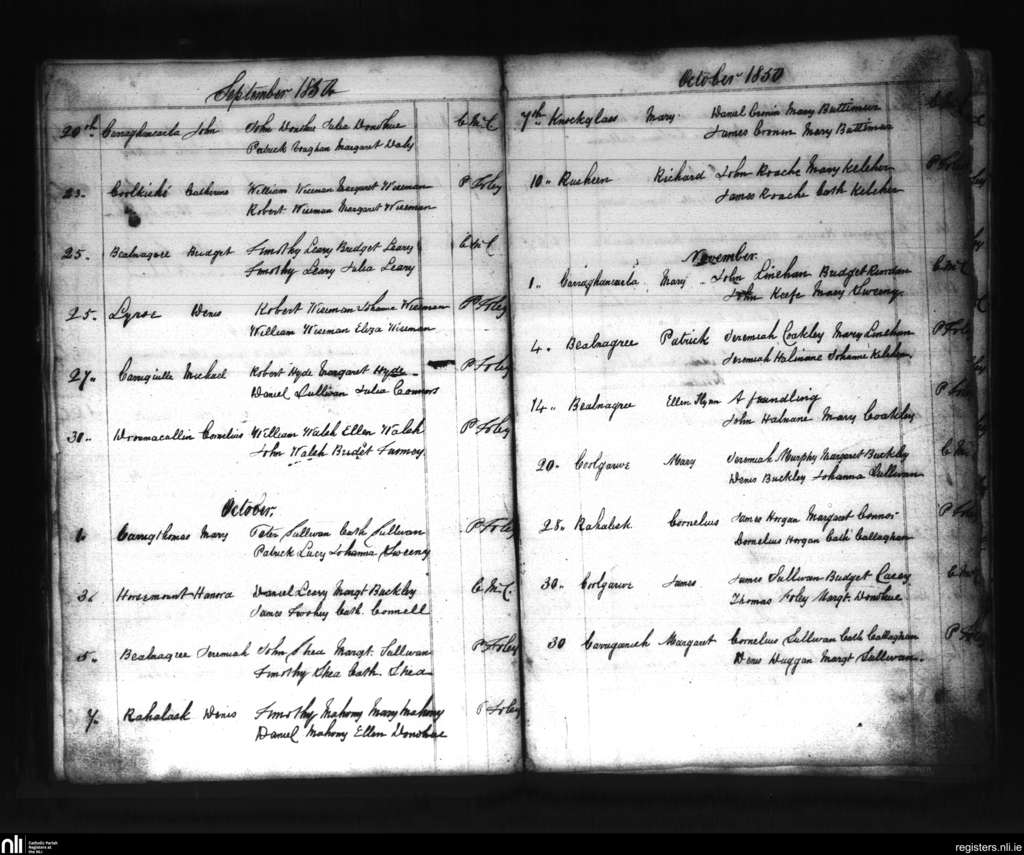 September 1850
20th Carraghancaela John John Donohue Julia Donohue C McC
Patrick Vaughan Margaret Daly
23. Coolkishé Catherine William Wiseman Margaret Wiseman P Foley
Robert Wiseman Margaret Wiseman
25. Bealnagree Bridget Timothy Leary Bridget Leary C McC
Timothy Leary Julia Leary
25. Lyroe Denis Robert Wiseman Johana Wiseman P Foley
William Wiseman Eliza Wiseman
27. Michael Robert Hyde Margaret Hyde P Foley
Daniel Sullivan Julia Connors
30. Cornelius William Walsh Ellen Walsh P Foley
John Walsh Bridget Twomey
October.
1. Carrigthomas Mary Peter Sullivan Cath Sullivan P Foley
Patrick Lucy Johanna Sweeny
3. Horsemount Hanora Daniel Leary Margt Buckley C. McC.
James Twohey Cath. Connell
5. Bealnagree Jeremiah John Shea Margt. Sullivan P Foley
Timothy Shea Cath. Shea
7. Rahalask Denis Timothy Mahony Mary Mahony P Foley
Daniel Mahony Ellen Donohue
October 1850
7th Knockglass Mary Daniel Cronin Mary Buttimeer
James Cronin Mary Buttimeer
10. Rusheen Richard John Roache Mary Keleher P Foley
James Roache Cath Keleher
November.
1. Carraghancaela Mary John Linehan Bridget Riordan
John Keefe Mary Sweeny
4. Bealnagree Patrick Jeremiah Coakley Mary Linehan P Foley
Jeremiah Halinane Johanna Kelehan
14. Bealnagree Ellen Flynn A foundling P Foley
John Halnane Mary Coakley
20. Coolgarive Mary Jeremiah Murphy Margaret Buckley
Denis Buckley Johanna Sullivan
28. Rahalisk Cornelius James Horgan Margaret Connor
Cornelius Horgan Cath Callaghan
30. Coolgarive James James Sullivan Bridget Casey
Thomas Foley Margt. Donohue
30 Carriganish Margaret Cornelius Sullivan Cath Callaghan P Foley
Denis Duggan Margt Sullivan
nli
Catholic Parish
Registers at
the NLI
registers.nli.ie